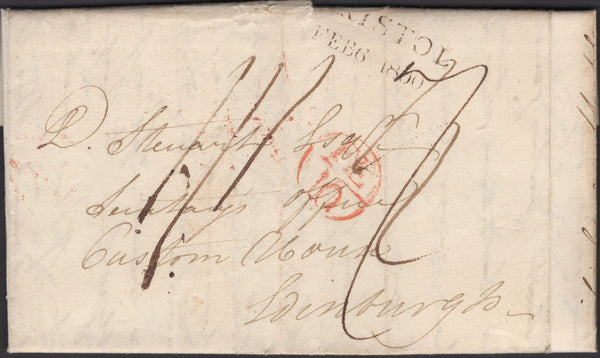 BRISTOL
FEB 6 1800
D. Stewart Esqr
Secretary's Office
Custom House
Edinburgh